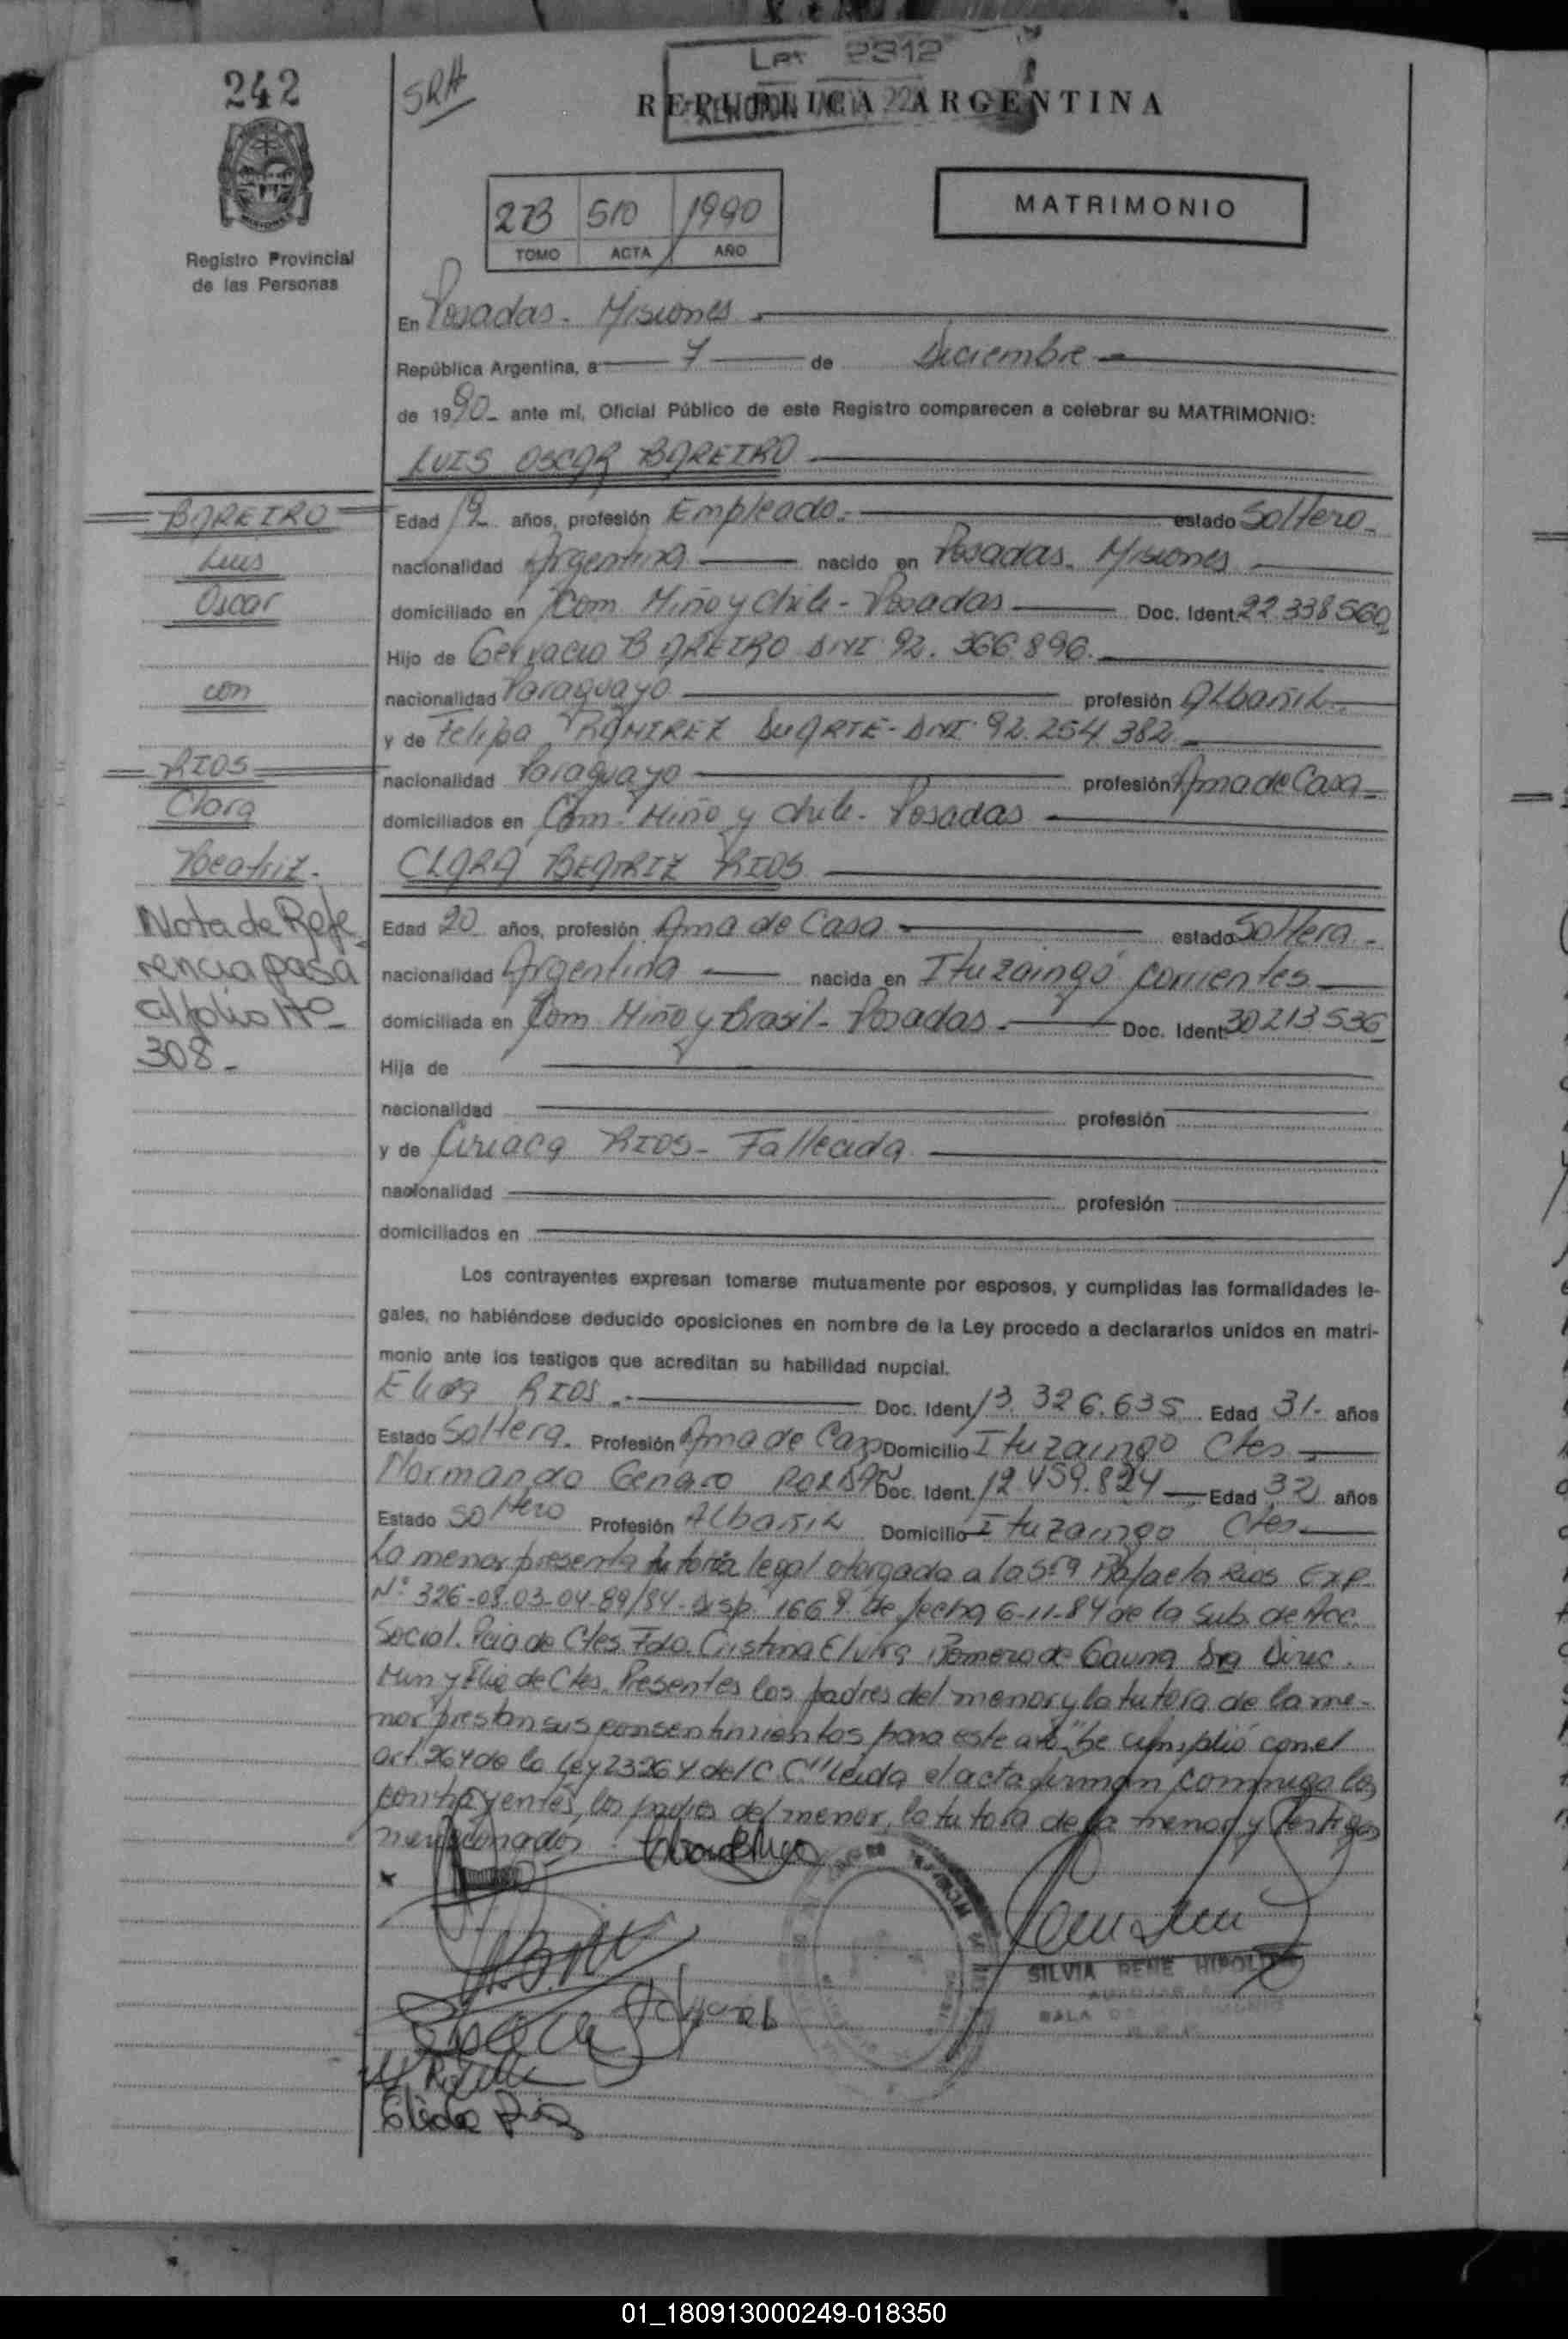 242
SRH
Ley 2312
REPUBLICA ARGENTINA
Registro Provincial
de las Personas
2B 510 1990
TOMO ACTA AÑO
MATRIMONIO
En Posadas - Misiones
República Argentina, a 7 de Diciembre
de 1990 ante mí, Oficial Público de este Registro comparecen a celebrar su MATRIMONIO:
LUIS OSCAR BAREIRO
BAREIRO
Luis
Oscar
con
RIOS
Clara
Beatriz.
Nota de Refe
rencia pasa
al folio Nº
308-
Edad 19 años, profesión Empleado. estado Soltero-
nacionalidad Argentina nacido en Posadas. Misiones
domiciliado en Com. Miño y Chile - Posadas Doc. Ident. 22.338560
Hijo de Gervacio BAREIRO DNI 92.366.896.
nacionalidad Paraguayo profesión Albañil
y de Felipa RAMIREZ DUARTE - DNI 92.254.382
nacionalidad Paraguayo profesión Ama de Casa
domiciliados en Com. Miño y Chile - Posadas
CLARA BEATRIZ RIOS
Edad 20 años, profesión Ama de Casa estado Soltera -
nacionalidad Argentina nacida en Ituzaingó Corrientes
domiciliada en Com Miño y Brasil - Posadas. Doc. Ident. 30213536
Hija de
nacionalidad profesión
y de Ciriaca RIOS - Fallecida
nacionalidad profesión
domiciliados en
Los contrayentes expresan tomarse mutuamente por esposos, y cumplidas las formalidades le-
gales, no habiéndose deducido oposiciones en nombre de la Ley procedo a declararlos unidos en matri-
monio ante los testigos que acreditan su habilidad nupcial.
Elida RIOS.- Doc. Ident. 13.326.635 Edad 31- años
Estado Soltera. Profesión Ama de Casa Domicilio Ituzaingo Ctes
Normando Genaro ROLDAN Doc. Ident. 12.459.824 Edad 32 años
Estado Soltero Profesión Albañil Domicilio Ituzaingo Ctes
La menor presenta tutoria legal otorgada a la Sra Rafaela Rios Exp.
Nº 326-08.03-04-89/84- Disp. 1668 de fecha 6-11-84 de la Sub. de Acc.
Social. Pcia de Ctes. Fdo. Cristina Elvira Romero de Gauna Dra Direc.
Min y Flia de Ctes. Presentes los padres del menor y la tutora de la me-
nor prestan sus consentimientos para este acto "Se cumplió con el
art. 264 de la Ley 23264 del C.C." Leida el acta firman conmigo los
contrayentes, los padres del menor, la tutora de la menor y testigos
mencionados
SILVIA RENE HIPOLITO
SALA DE
Elida Rios
01_180913000249-018350